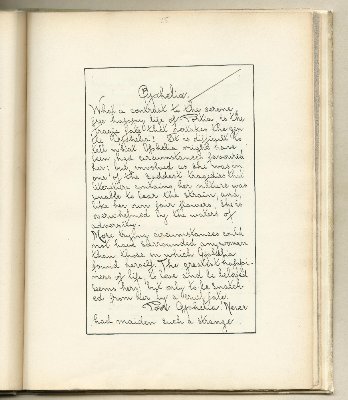 Ophelia.
What a contrast to the serene
yet happy life of Portia is the
tragic fate that overtakes the gen
tle Ophelia! It is difficult to
tell what Ophelia might have
been had circumstances favoured
her; but involved as she was in
one of the saddest tragedies that
literature contains, her nature was
unable to bear the strain, and,
like her own four flowers, she is
overwhelmed by the waters of
adversity.
More trying circumstances could
not have surrounded any woman
than those in which Ophelia
found herself. The greatest happi-
ness of life to love and be beloved
seems hers; but only to be snatch
ed from her by a cruel fate.
Poor Ophelia! Never
had maiden such a strange